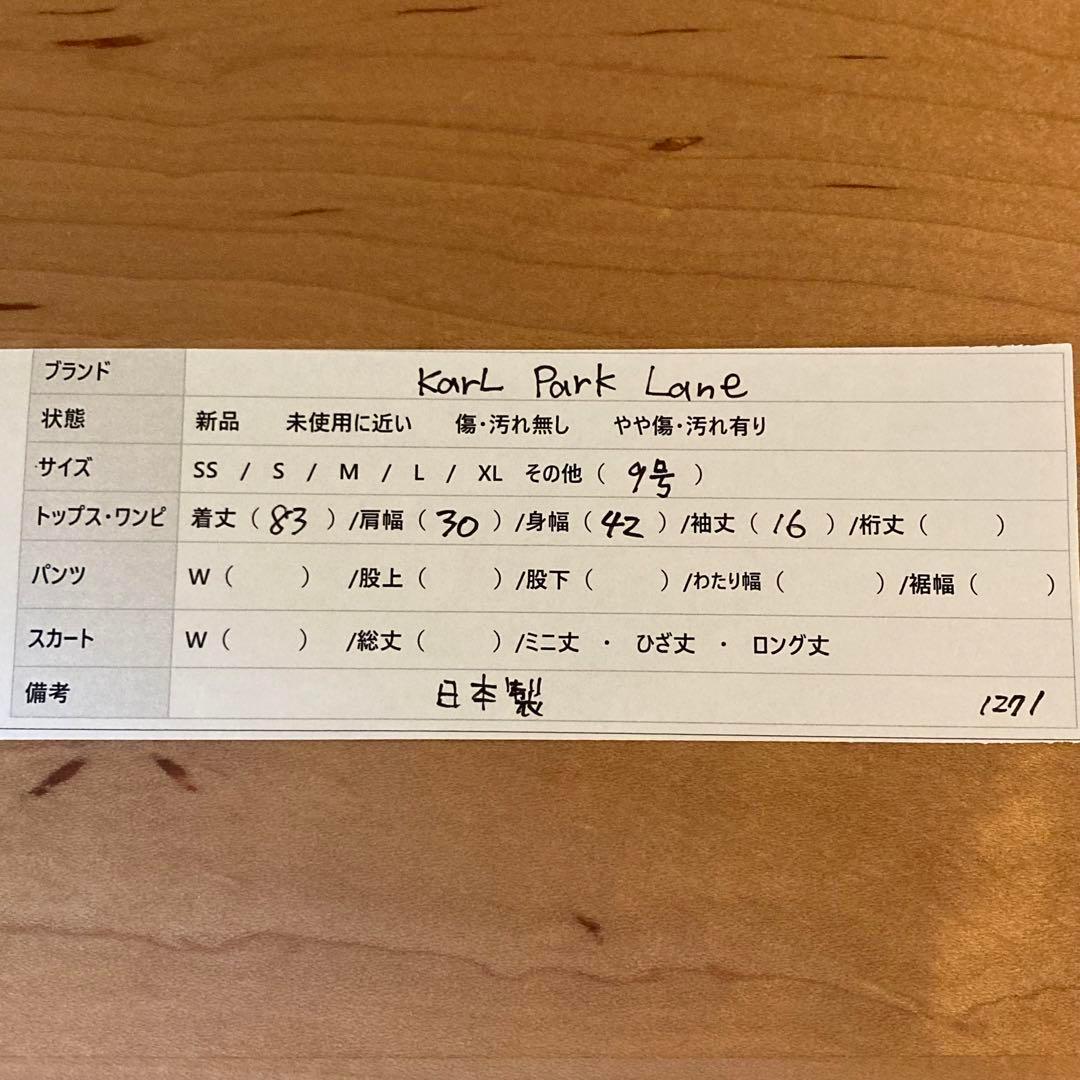 ブランド KarL Park Lane
状態 新品 未使用に近い 傷・汚れ無し やや傷・汚れ有り
サイズ SS / S / M / L / XL その他（ 9号 ）
トップス・ワンピ 着丈（ 83 ）/肩幅（ 30 ）/身幅（ 42 ）/袖丈（ 16 ）/裄丈（ ）
パンツ W（ ） /股上（ ）/股下（ ）/わたり幅（ ）/裾幅（ ）
スカート W（ ） /総丈（ ）/ミニ丈 ・ ひざ丈 ・ ロング丈
備考 日本製 1271